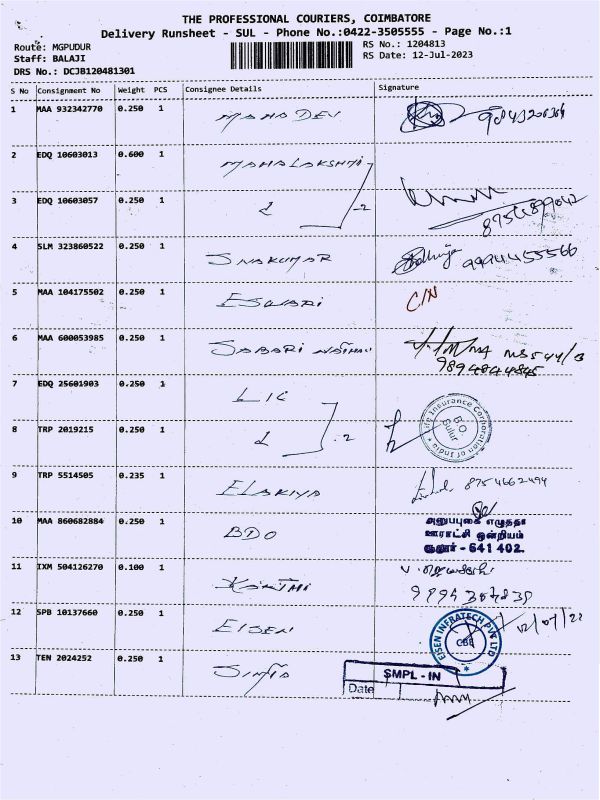 THE PROFESSIONAL COURIERS, COIMBATORE
Delivery Runsheet - SUL - Phone No.:0422-3505555 - Page No.:1
Route: MGPUDUR
RS No.: 1204813
Staff: BALAJI
RS Date: 12-Jul-2023
DRS No.: DCJB120481301
S No Consignment No Weight PCS Consignee Details Signature
1 MAA 932342770 0.250 1 MAHADEV
2 EDQ 10603013 0.600 1 MAHALAKSHMI
3 EDQ 10603057 0.250 1 2 -2
4 SLM 323860522 0.250 1 SIVAKUMAR 9994455566
5 MAA 104175502 0.250 1 ESWARI C/N
6 MAA 600053985 0.250 1 SABARI
7 EDQ 25601903 0.250 1 LIC
Life Insurance Corporation of India
B.O
Sulur
8 TRP 2019215 0.250 1 2 -2
9 TRP 5514505 0.235 1 ELAKIYA 8754662494
10 MAA 860682884 0.250 1 BDO
அனுப்புகை எழுத்தர்
ஊராட்சி ஒன்றியம்
சூலூர் - 641 402.
11 IXM 504126270 0.100 1
12 SPB 10137660 0.250 1 EISEN
EISEN INFRATECH PVT LTD
CBE
13 TEN 2024252 0.250 1
SMPL - IN
Date